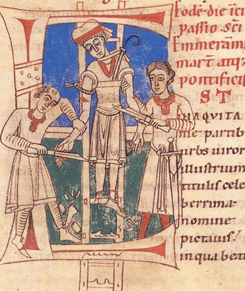 passio sc̄i
Emmerammi
mart atq;
pontificis
S T
HAQVITA
nie partib;
urbs uiror
illustrium
titulis cele
berrima
nomine
pictauis
in qua beat